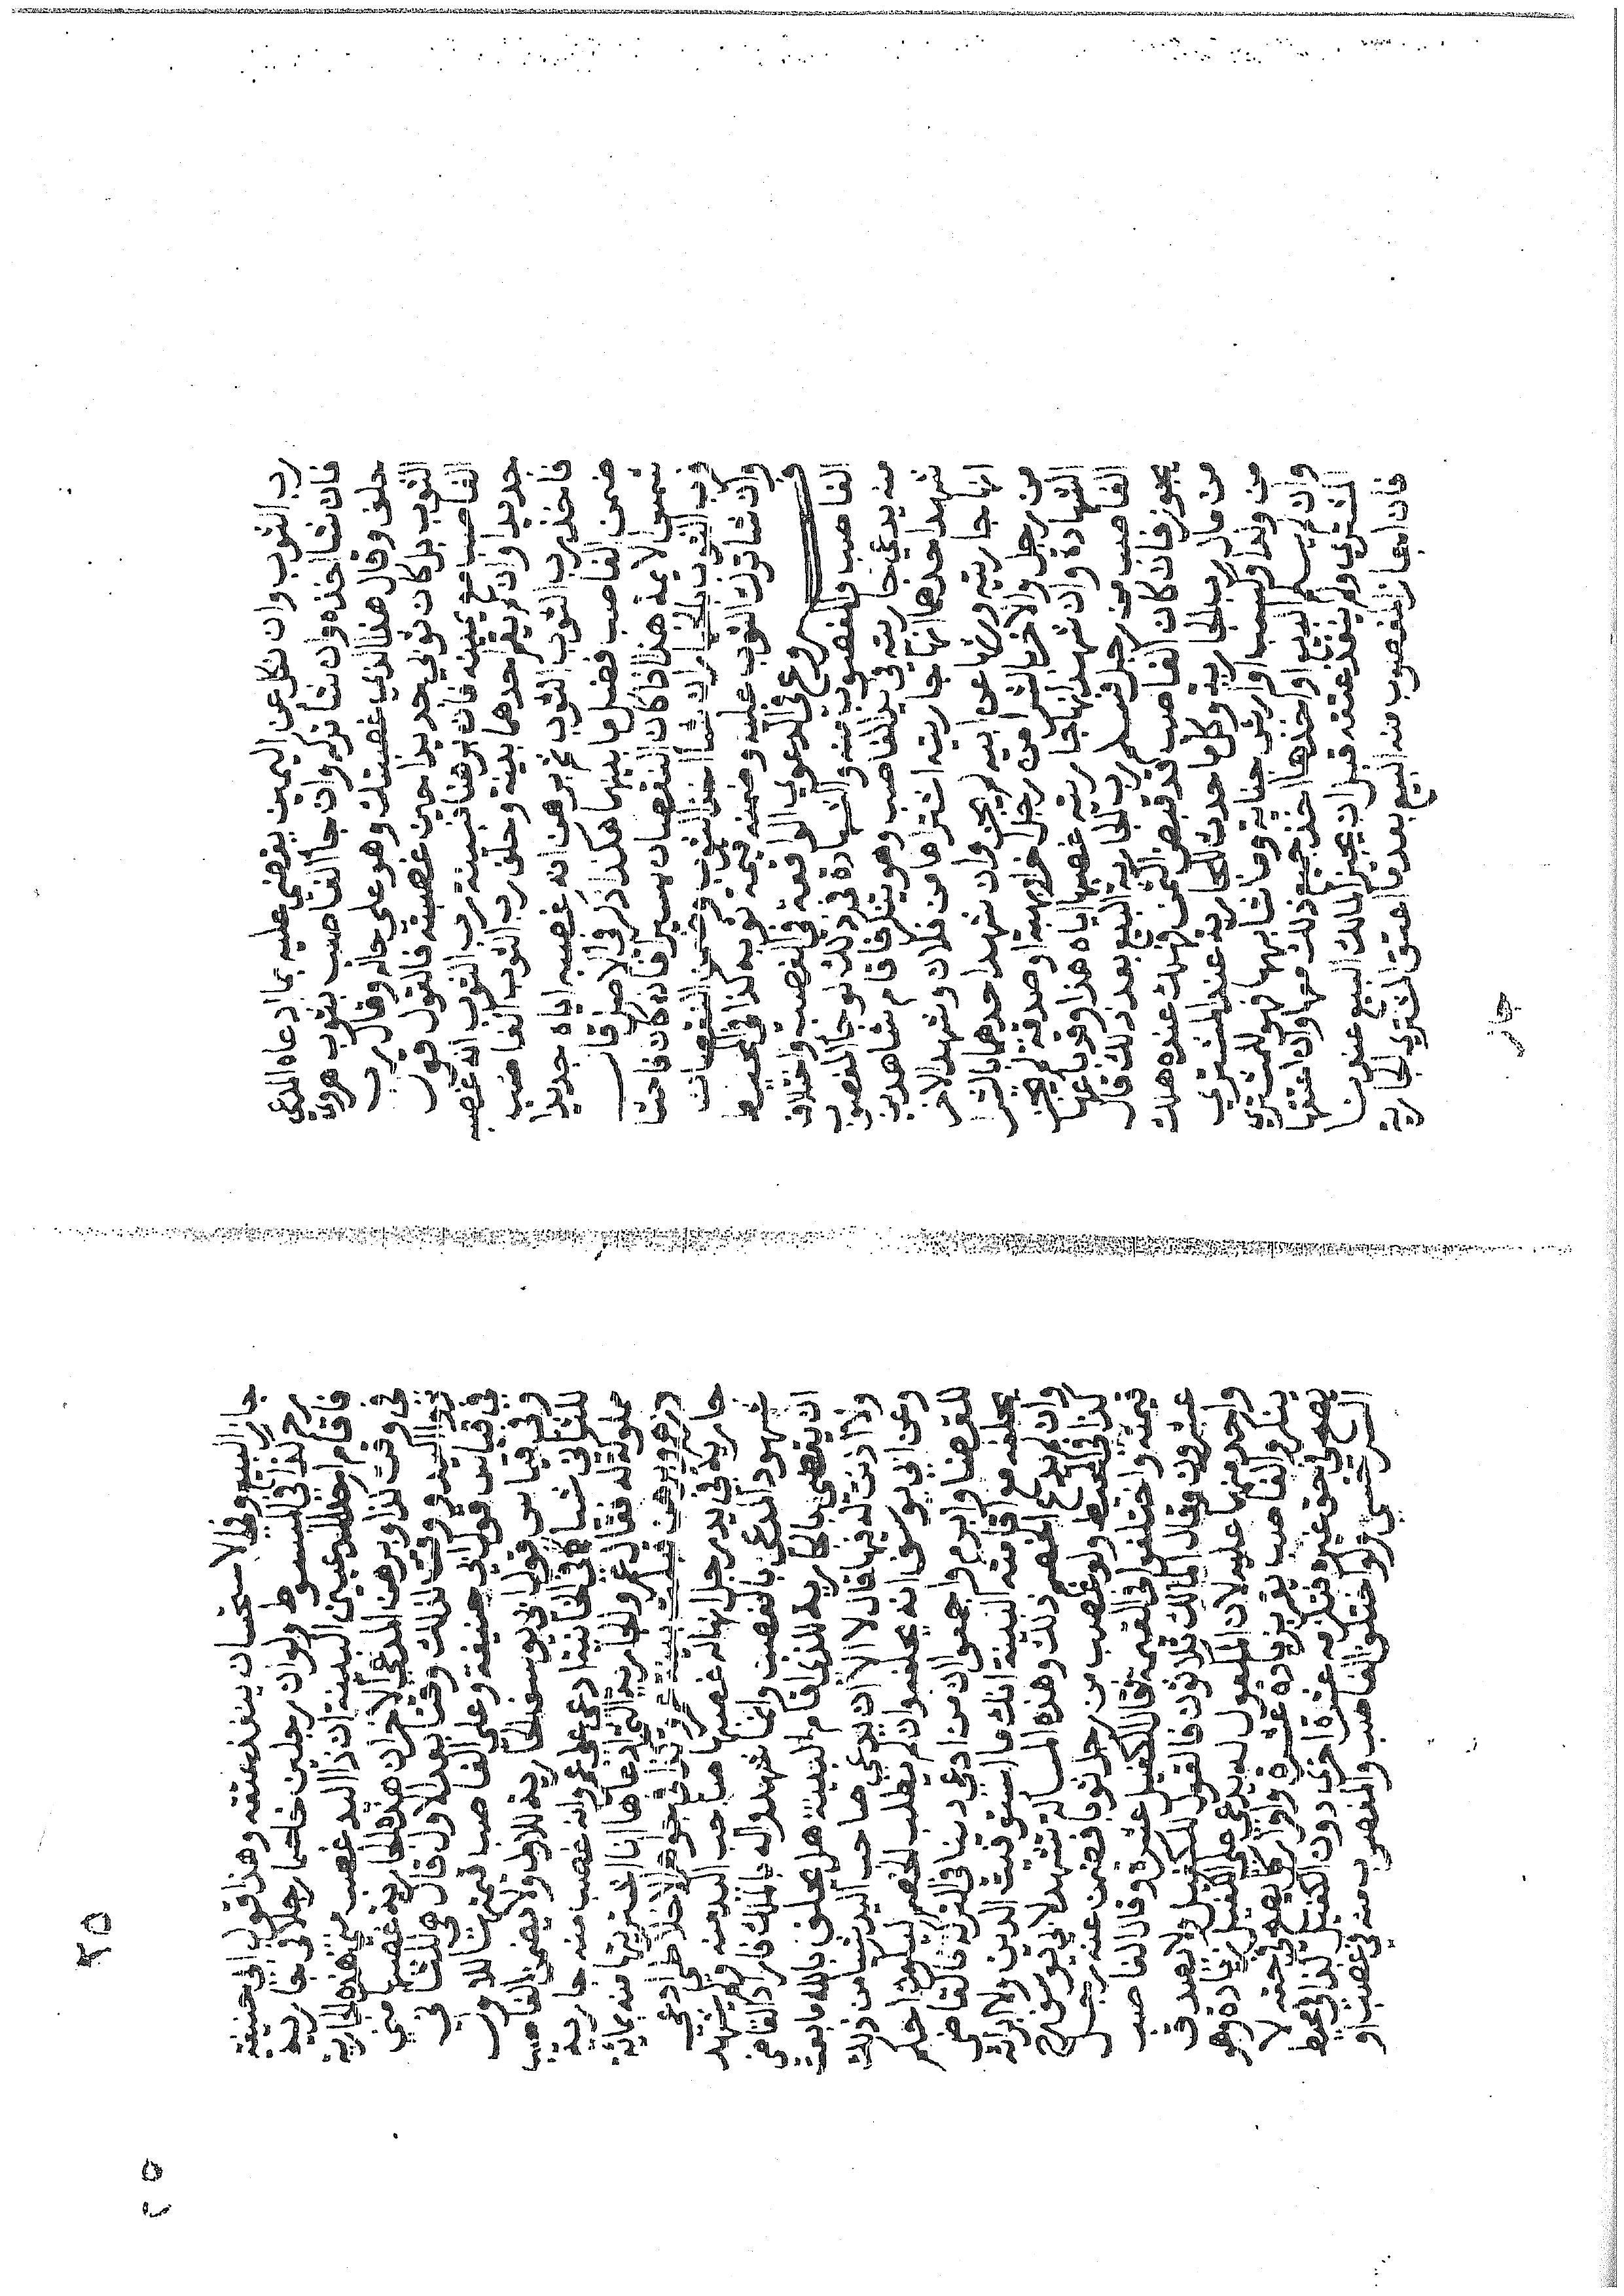 رب الثوب وان نكل عن اليمين يقضي عليه بما ادعاه المدعي
فان شا اخذه وان شا تركه وان جا الغاصب بثوب هروي
خلق وقال هذا الذي غصبتك وهو على حاله وقال رب
الثوب بل كان ثوبي جديدا حين غصبته فالقول قول
الغاصب مع يمينه فان برهنا فبينة رب الثوب انه غصبه
جديدا وان لم يقم احدهما بينة وحلف رب الثوب الغاصب
فاخذ رب الثوب الثوب ثم برهن انه غصبه اياه جديدا
ضمن الغاصب فضل ما بينهما هكذا ذكر في الاصل قال
شمس الايمة هذا اذا كان النقصان يسيرا فاذا كان فاحشا
فرب الثوب بالخيار ان شا اخذ الثوب وضمن النقصان
وان شا ترك الثوب عليه وضمنه قيمة ثوبه كذا في المحيط
فروع في الدعوي الواقعة في الغصب واختلاف
الغاصب والمغصوب منه والشهادة في ذلك لو جا المغصوب
منه يدعي جاريته في يد الغاصب وهو ينكر فاقام شاهدين
شهد احدهما انها جاريته اشتراها من فلان وشهد الاخر
انها جاريته ورثها عن ابيه لم يجز وان شهد احدهما بالشرا
من رجل والاخر بالشرا من رجل اخر او بهبة او صدقة لم تجز
الشهادة وان شهد انها جاريته غصبها اياه هذا وقد باعها
الغاصب من رجل فسلم رب الجارية البيع بعد ذلك قال
يجوز فان كان الغاصب قد قبض الثمن فهلك عنده هلك
من مال رب الجارية وكل ما حدث للجارية عند المشتري
من ولد او كسب او ارش جناية وما شابهها فهو للمشتري
وان لم يسلم البيع واخذها اخذ جميع ذلك معها وان اعتقها
المشتري لم ينفذ عتقه قبل ان يجيز المالك البيع عندنا
فان اجاز المغصوب منه البيع بعد ما اعتق المشتري الجارية
جاز
٢٥
٢٥
جاز البيع وفي الاستحسان ينفذ عتقه وهذا قول ابي حنيفة
رحـ كذا في المبسوط ولو ان رجلين خاصما رجلا في جارية
فاقام احد المدعيين البينة ان ذا اليد غصب مني هذه الجارية
في وقت كذا وبرهن المدعي الاخر ان هذه الجارية غصبها مني
ذو اليد ووقت لذلك وقتا بعد الاول قال هي للثاني
في قياس قول ابي حنيفة وعلى الغاصب قيمتها للاول
وفي قياس قول ابي يوسف الجارية للاول ولا يضمن الغاصب
للثاني شيا في الخانية ادعى على عمرو انه غصب منه جارية
مملوكة له فقال عمرو الجارية التي ادعاها انا اشتريتها منه بماية
درهم وبرهن قبلت بينة عمرو كذا في جواهر الاخلاطي ادعى
جارية في يد رجل انها له غصبها صاحب اليد منه ولم يشهد
شهود المدعي بالغصب وانما شهدوا له بالملك فاراد القاضي
ان يقضي بالجارية للذي اقام البينة هل يحلف بالله ما بعت
ولا اذنت له فيها قال لا الا ان يدعي صاحب اليد شيا من ذلك
وعن ابي يوسف انه يحلفه وان لم يطلب الخصم ليكون احكم
للقضا وابرم واجمعوا ان من ادعى دينا في التركة فالقاضي
يحلفه مع اقامته البينة انك ما استوفيت الدين ولا ابراته
وان لم يدع الخصم ذلك وهذه المسالة تشهد لابي يوسف رحـ
كذا في المحيط ولو غصب من رجل ثوبا فضمن عنه رجل
قيمته واختلفوا في القيمة فقال الكفيل عشرة وقال الغاصب
عشرون وقال المالك ثلاثون فالقول للكفيل ولا يصدق
واحد منهما عليه لان المكفول له يدعي على الكفيل زيادة وهو
ينكر والغاصب يقر بزيادة عشرة واقرار كل يصح في حقه لا
يصح في حق غيره فتلزمه عشرة اخرى دون الكفيل كذا في محيط
السرخسي ولو اختلف الغاصب والمغصوب منه في غصب او